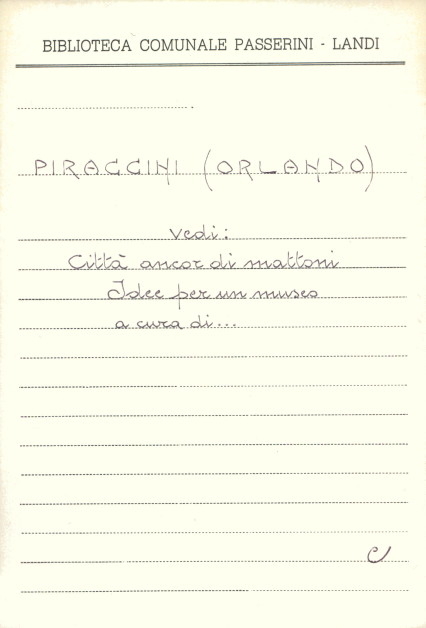 BIBLIOTECA COMUNALE PASSERINI - LANDI
PIRACCINI (ORLANDO)
Vedi:
Città ancor di mattoni
Idee per un museo
a cura di...
C